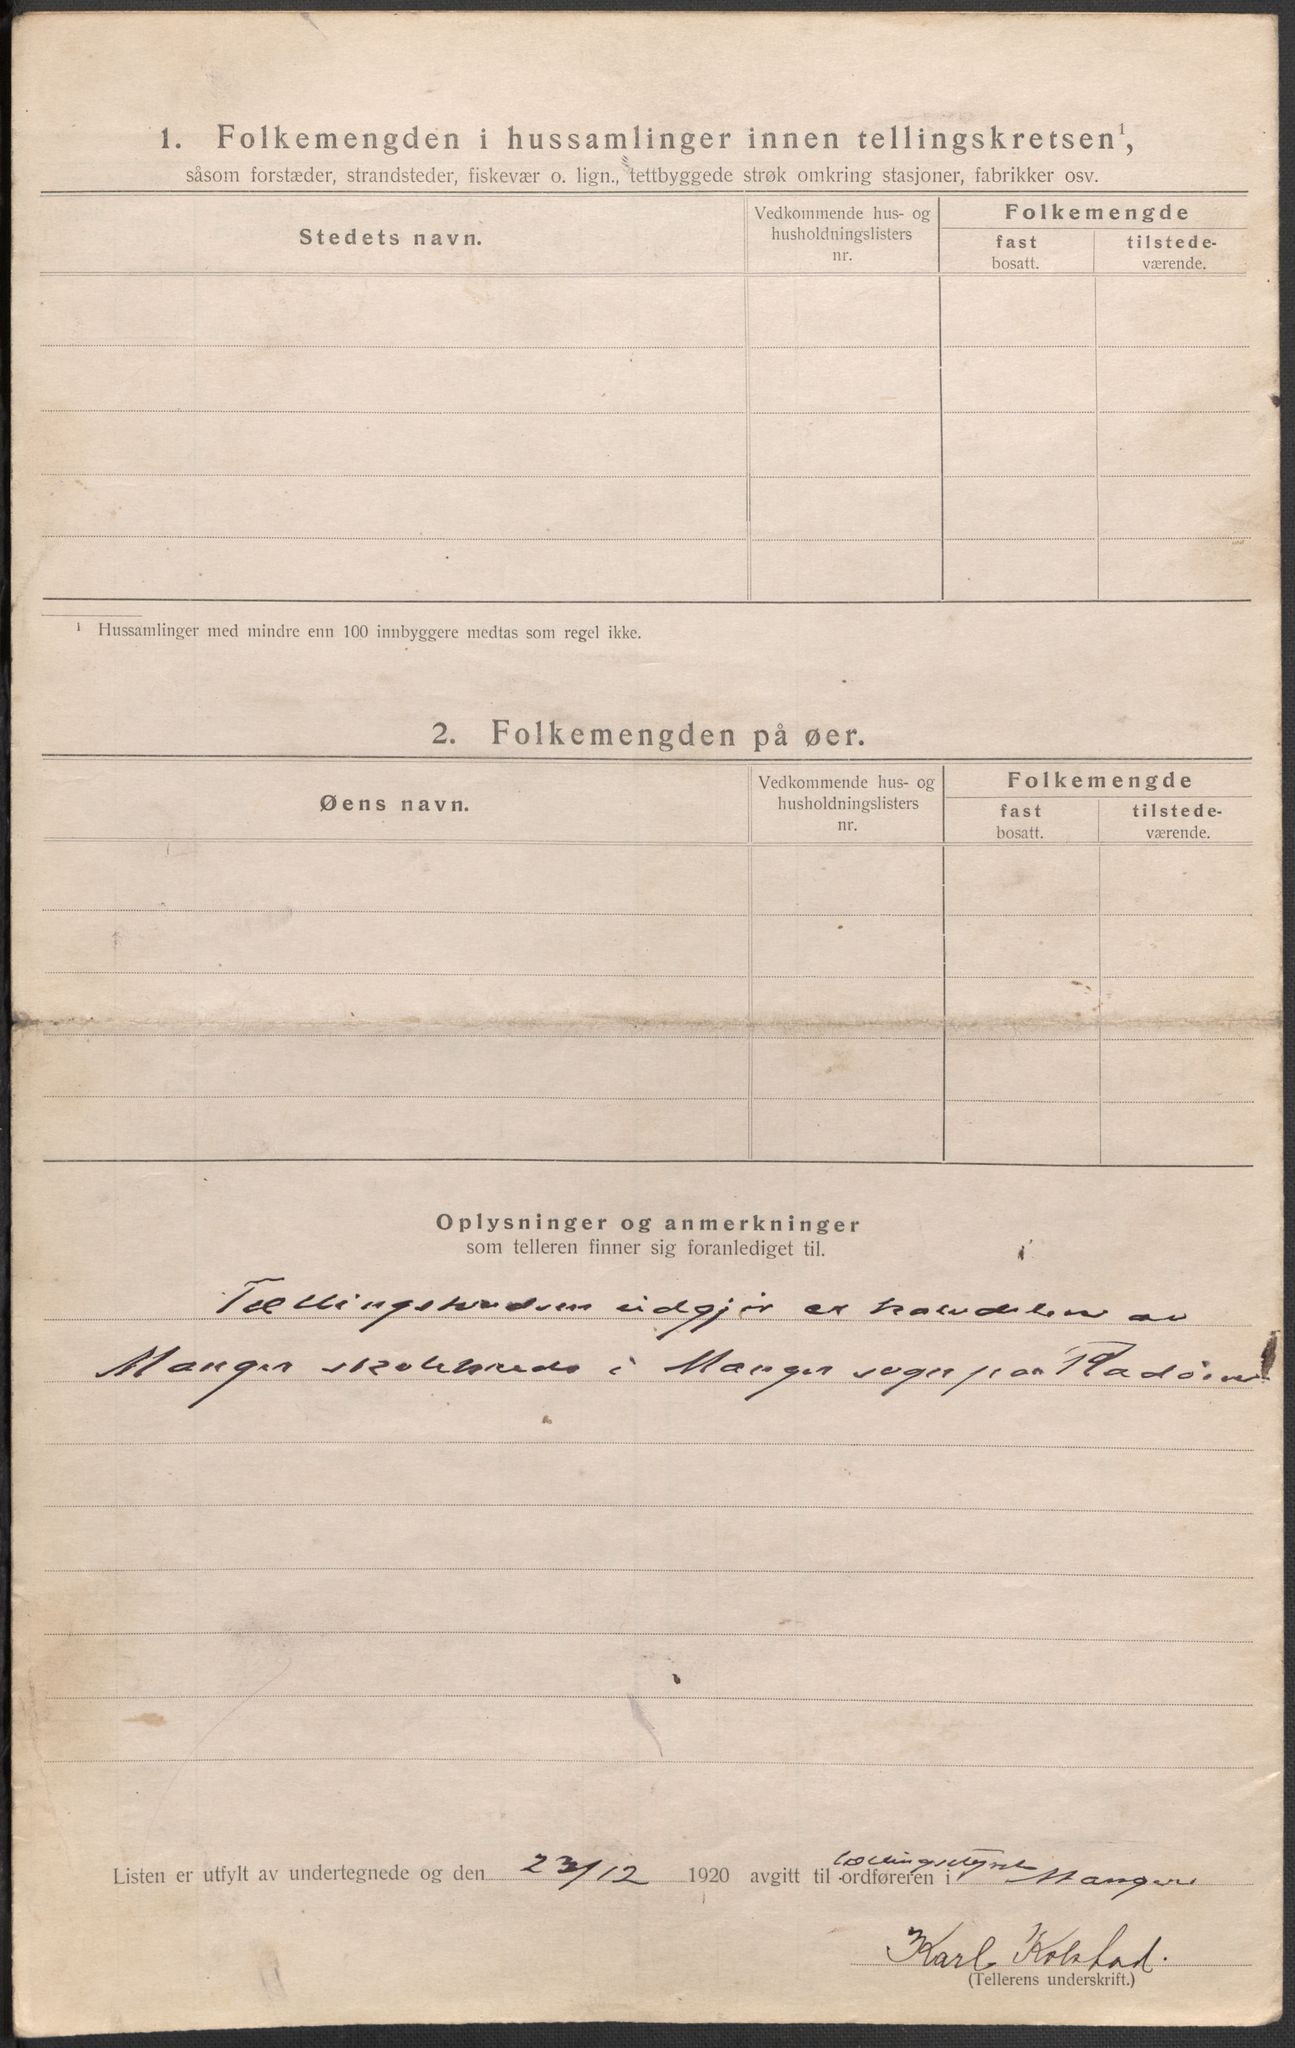 1. Folkemengden i hussamlinger innen tellingskretsen¹,
såsom forstæder, strandsteder, fiskevær o. lign., tettbyggede strøk omkring stasjoner, fabrikker osv.
Stedets navn.
Vedkommende hus- og
husholdningslisters
nr.
Folkemengde
fast
bosatt.
tilstede-
værende.
¹ Hussamlinger med mindre enn 100 innbyggere medtas som regel ikke.
2. Folkemengden på øer.
Øens navn.
Vedkommende hus- og
husholdningslisters
nr.
Folkemengde
fast
bosatt.
tilstede-
værende.
Oplysninger og anmerkninger
som telleren finner sig foranlediget til.
Tællingskredsen udgjør en halvdelen av
Manger skolekreds i Manger sogn paa Radøen
Listen er utfylt av undertegnede og den 23/12 1920 avgitt til ordføreren i Manger
tællingsstyret
Karl Kolstad.
(Tellerens underskrift.)